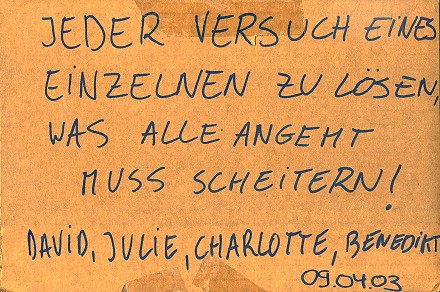 JEDER VERSUCH EINES
EINZELNEN ZU LÖSEN,
WAS ALLE ANGEHT
MUSS SCHEITERN!
DAVID, JULIE, CHARLOTTE, BENEDIKT
09.04.03